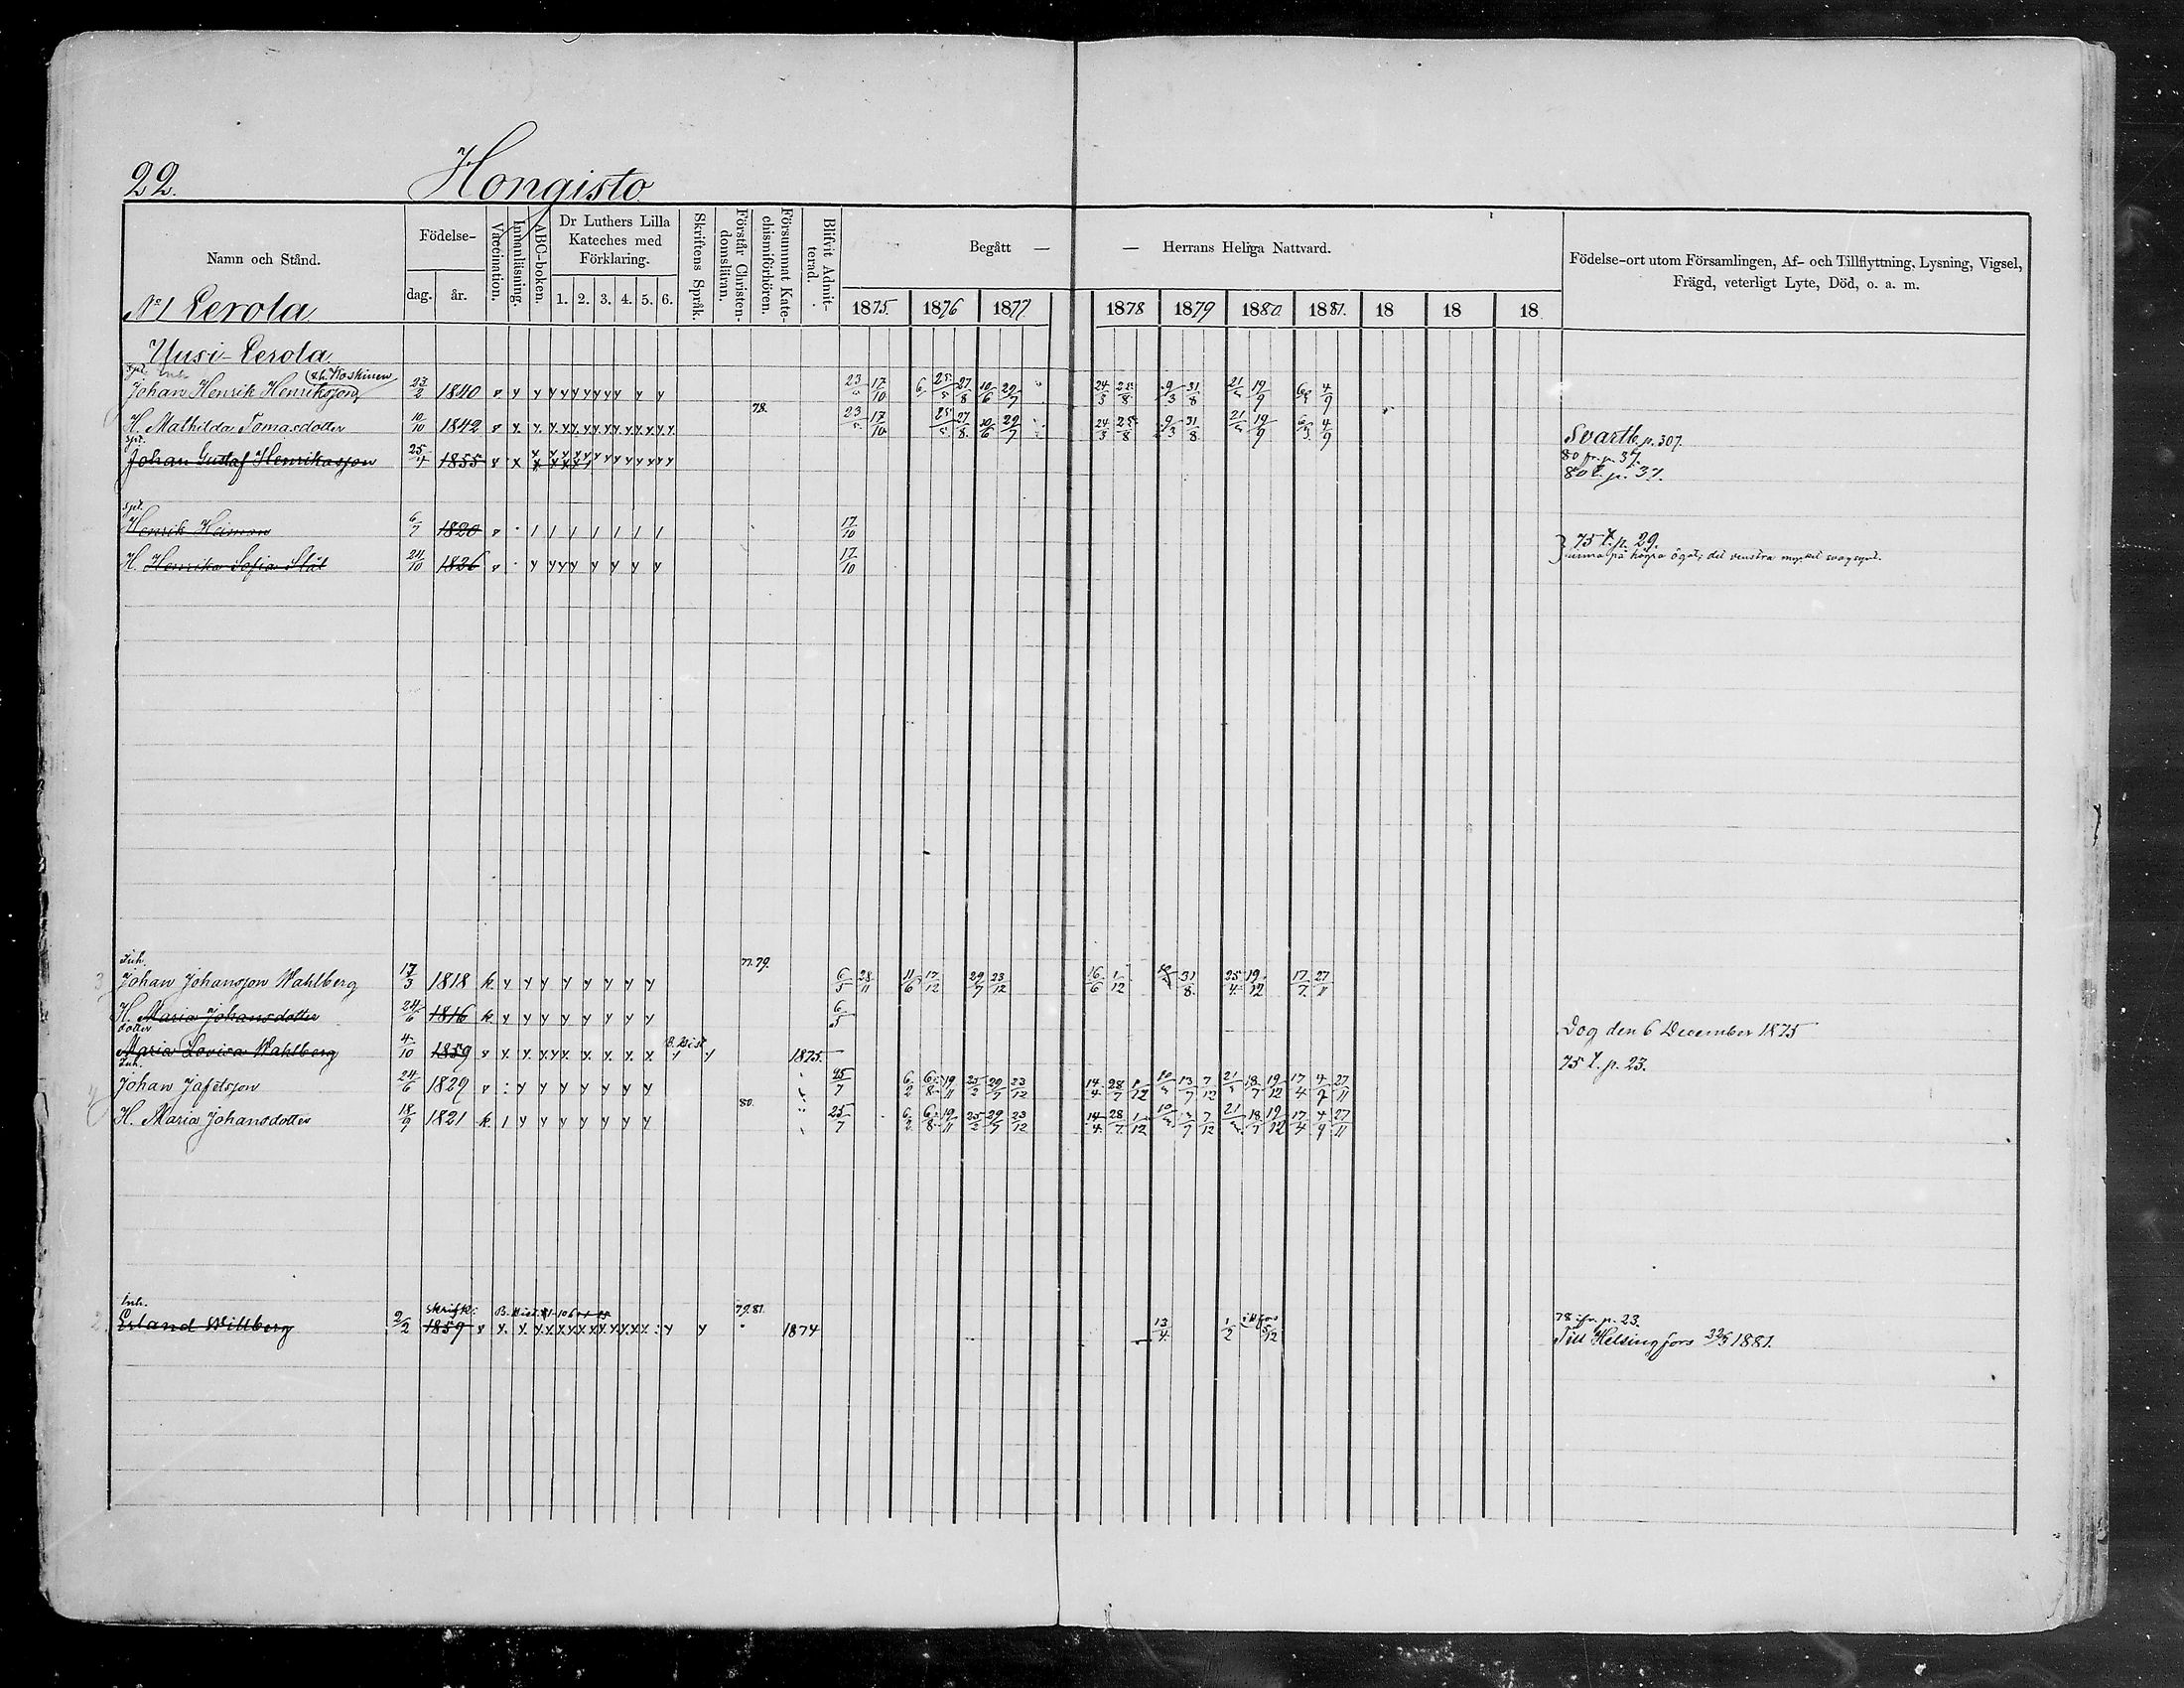 22. Hongisto
Namn och Stånd.
Födelse-
dag.
år.
Vaccination.
Innanläsning.
ABC-boken.
Dr Luthers Lilla
Kateches med
Förklaring.
1. 2. 3. 4. 5. 6.
Skriftens Språk.
Förstår Christen-
domsläran.
Försummat Kate-
chismiförhören.
Blifvit Admit-
terad.
Begått — — Herrans Heliga Nattvard.
1875. 1876 1877 1878 1879 1880 1881. 18 18 18
Födelse-ort utom Församlingen, Af- och Tillflyttning, Lysning, Vigsel,
Frägd, veterligt Lyte, Död, o. a. m.
No 1 Perola
Uusi-Perola
Koskinen
Johan Henrik Henriksson 23/2 1840 v y y y y y y y y y y 23/5 17/10 6 25/5 27/8 10/6 29/7 24/3 25/8 9/3 31/8 21/3 19/9 6/3 4/9
78.
H. Mathilda Tomasdotter 10/10 1842 23/5 17/10 25/5 27/8 10/6 29/7 24/3 25/8 9/3 31/8 21/3 19/9 6/3 4/9
Svartb. p. 307.
Johan Gustaf Henriksson 25/7 1855
80 fr. p. 37.
80 t. p. 37.
Henrik Heimon 6/7 1820 v 17/10
75 t. p. 29.
H. Henrika Sofia Slåt 24/10 1826 v 17/10
på högra ögat, det venstra mycket svagsynt.
Inh. 77.79.
3 Johan Johansson Wahlberg 17/3 1818 k y y y y y y y y 6/5 28/11 11/6 17/12 29/7 23/12 16/6 1/12 31/8. 25/4 19/12 17/7 27/11
H. Maria Johansdotter 24/6 1816 k y y y y y y y y 6/5
Dog den 6 December 1875
dotter
Maria Lovisa Wahlberg 4/10 1859 1875.
75 t. p. 23.
Inh.
4 Johan Jafetsson 24/6 1829 v : y y y y y y y 25/7 6/2 6/8 19/11 25/2 29/7 23/12 14/4 28/7 1/12 10/3 13/7 7/12 21/3 18/7 19/12 17/4 4/9 27/11
80.
H. Maria Johansdotter 18/9 1821 k 1 y y y y y y y 25/7 6/2 6/8 19/11 25/2 29/7 23/12 14/4 28/7 1/12 10/3 13/7 7/12 21/3 18/7 19/12 17/4 4/9 27/11
Inh. 79.81.
2. Erland Willberg 2/2 1859 1874 13/4. 1/2 5/12
78 fr. p. 23.
Till Helsingfors 1881.